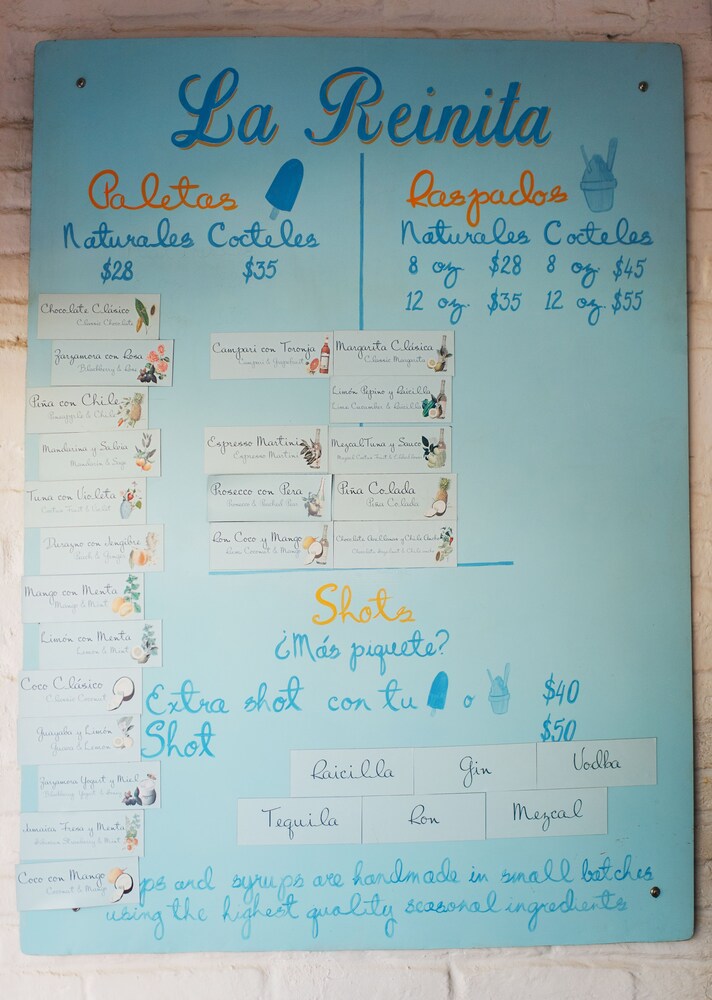 La Reinita
Paletas
Naturales Cocteles
$28 $35
Raspados
Naturales Cocteles
8 oz. $28 8 oz. $45
12 oz. $35 12 oz. $55
Chocolate Clásico
Classic Chocolate
Zarzamora con Rosa
Blackberry & Rose
Piña con Chile
Pineapple & Chile
Mandarina y Salvia
Mandarin & Sage
Tuna con Violeta
Cactus Fruit & Violet
Durazno con Jengibre
Peach & Ginger
Mango con Menta
Mango & Mint
Limón con Menta
Lemon & Mint
Coco Clásico
Classic Coconut
Guayaba y Limón
Guava & Lemon
Zarzamora Yogurt y Miel
Jamaica Fresa y Menta
Hibiscus Strawberry & Mint
Coco con Mango
Coconut & Mango
Campari con Toronja
Campari & Grapefruit
Margarita Clásica
Classic Margarita
Limón Pepino y Raicilla
Lime Cucumber & Raicilla
Espresso Martini
Espresso Martini
Mezcal Tuna y Sauco
Prosecco con Pera
Piña Colada
Piña Colada
Ron Coco y Mango
Rum Coconut & Mango
Shots
¿Más piquete?
Extra shot con tu o $40
Shot $50
Raicilla Gin Vodka
Tequila Ron Mezcal
ps and syrups are handmade in small batches
using the highest quality seasonal ingredients